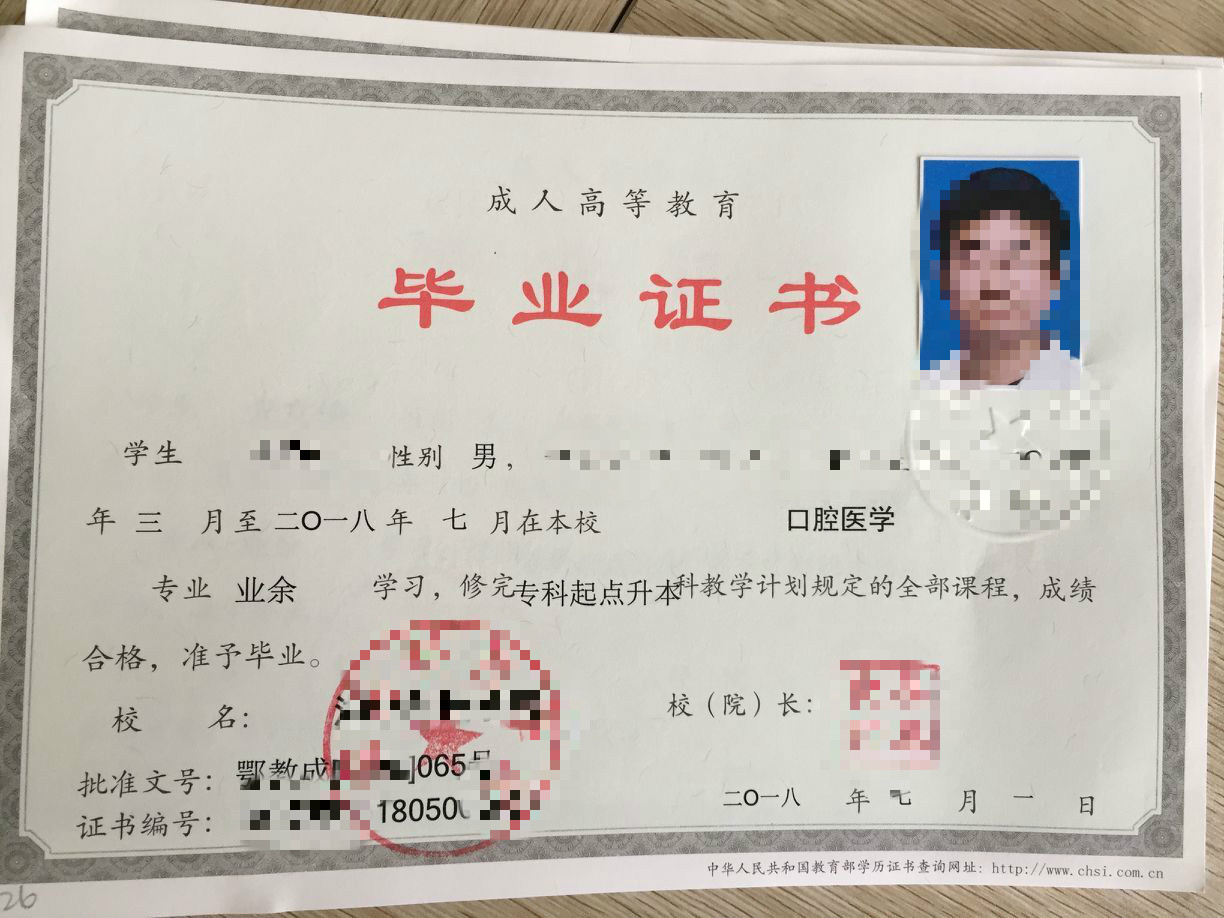 成人高等教育
毕业证书
学生 性别 男，
年 三 月至 二〇一八 年 七 月在本校 口腔医学
专业 业余 学习，修完专科起点升本科教学计划规定的全部课程，成绩
合格，准予毕业。
校 名： 校（院）长：
批准文号：鄂教成 ]065号
证书编号： 18050
二〇一八 年 七 月 一 日
中华人民共和国教育部学历证书查询网址：http://www.chsi.com.cn
26